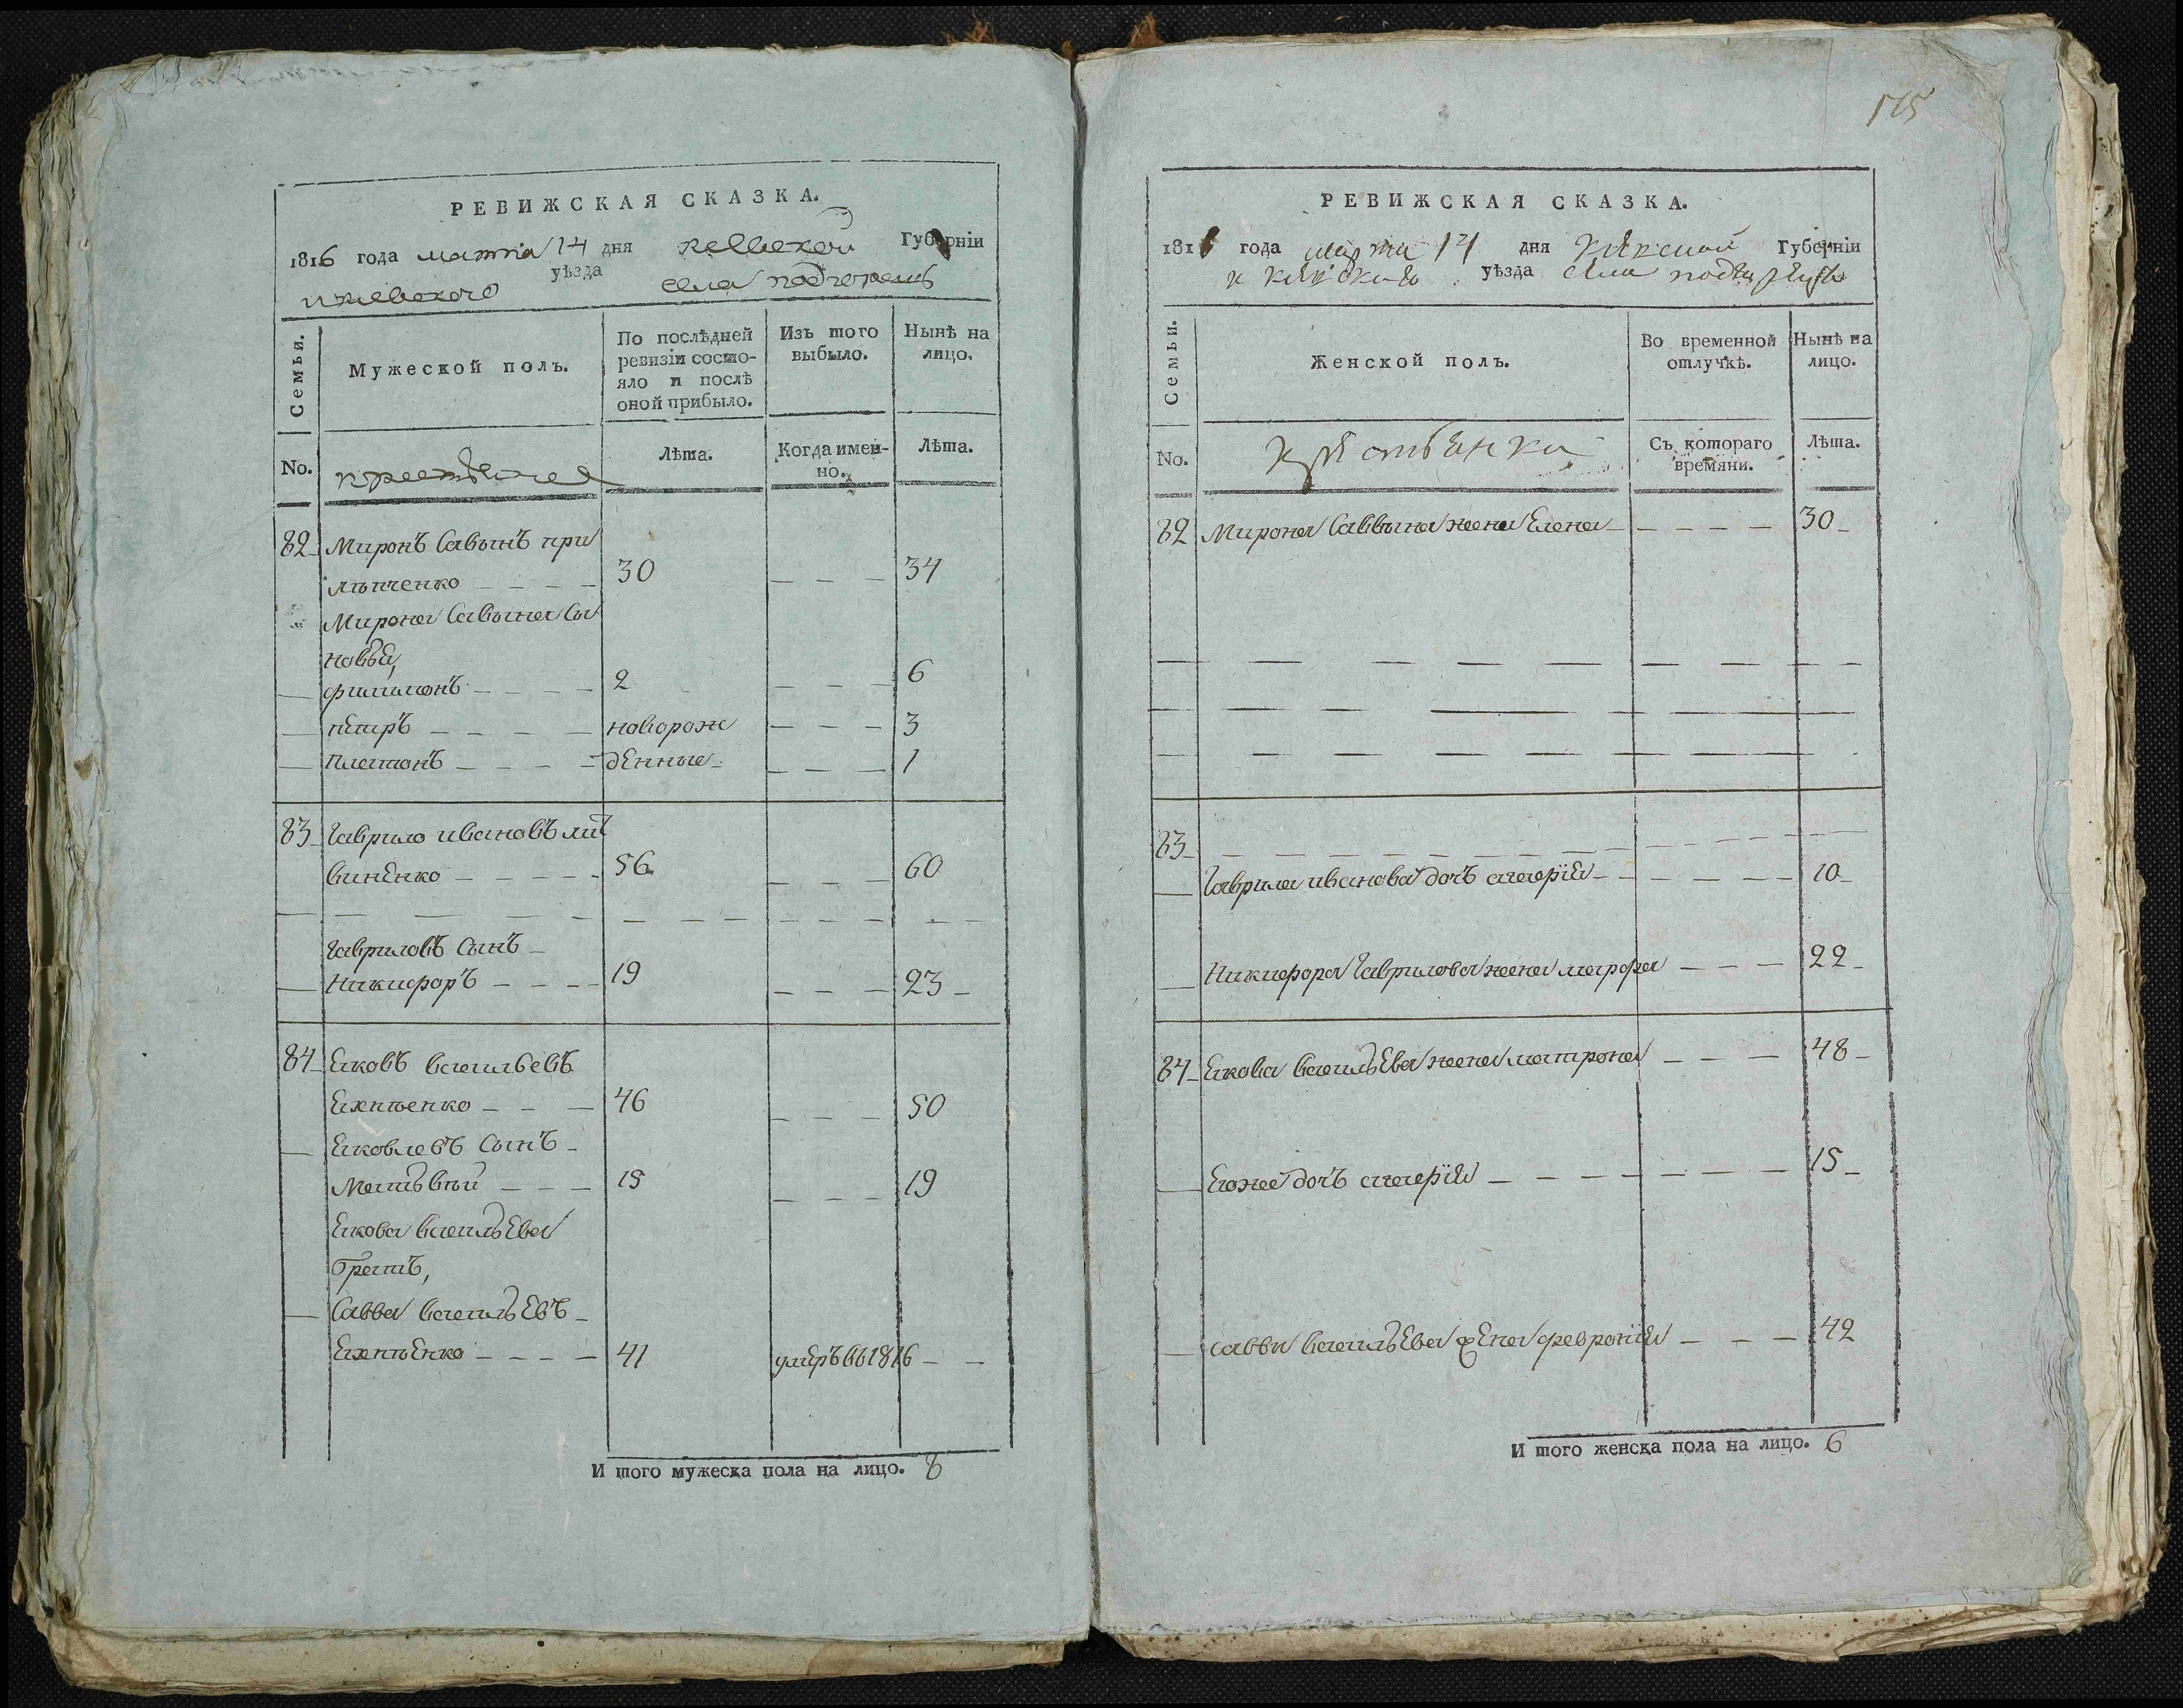 РЕВИЖСКАЯ СКАЗКА.
1816 года марта 14 дня киевской Губерніи
и киевского уѣзда села подгорець
Семьи.
Мужеской полъ.
По послѣдней ревизіи состояло и послѣ оной прибыло.
Изъ того выбыло.
Нынѣ на лицо.
No.
крестьяне
Лѣта.
Когда именно.
Лѣта.
82 Миронъ Савынъ при
лѣпченко 30 34
Мирона Савына сы
новья,
филимонъ 2 6
пётръ новорож 3
Платонъ денные 1
83 Гаврило ивановъ лит
виненко 56 60
Гавриловъ Сынъ
Никифоръ 19 23
84 Яковъ васильевъ
Яхненко 46 50
Яковлевъ Сынъ
Матвѣй 15 19
Якова васильева
братъ,
Савва васильевъ
Яхненко 41 умеръ в 1816
И того мужеска пола на лицо. 8
175
РЕВИЖСКАЯ СКАЗКА.
181 года марта 14 дня киевской Губерніи
и киевского уѣзда села
Семьи.
Женской полъ.
Во временной отлучкѣ.
Нынѣ на лицо.
No.
крестьянки
Съ котораго времяни.
Лѣта.
82 Мирона Саввына жена Елена 30
83
Гаврила иванова дочь 10
Никифора Гаврилова жена марфа 22
84 Якова васильева жена матрона 48
Егоже дочь 15
саввы васильева жена феврония 42
И того женска пола на лицо. 6